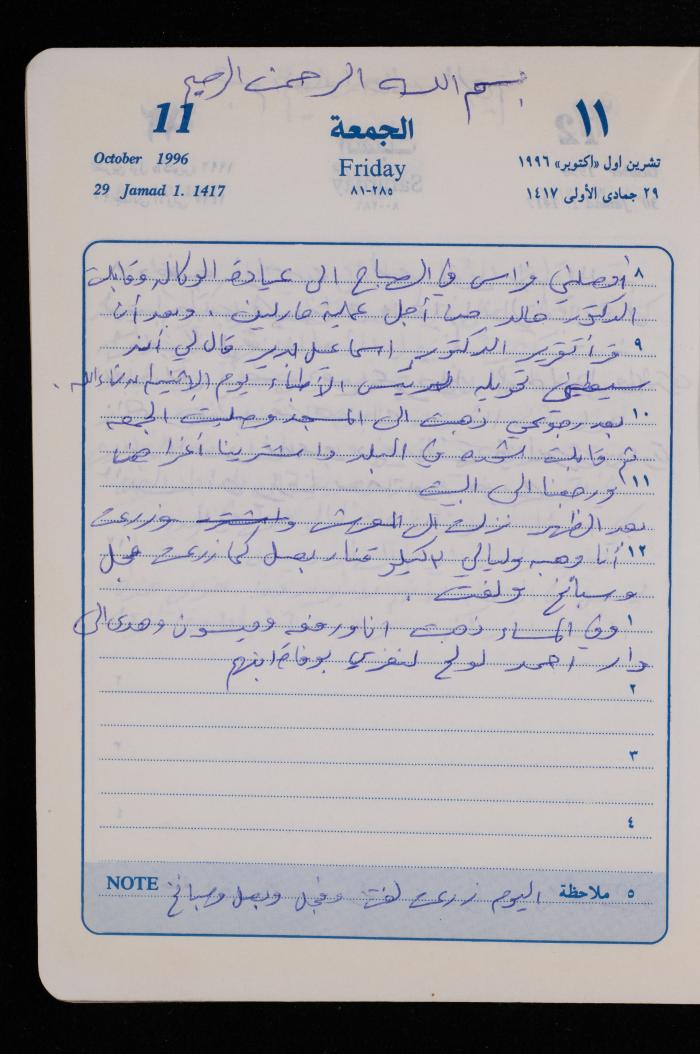 بسم الله الرحمن الرحيم
11 الجمعة ١١
October 1996 Friday تشرين اول «اكتوبر» ١٩٩٦
29 Jamad 1. 1417 ٨١-٢٨٥ ٢٩ جمادى الأولى ١٤١٧
٨ أوصلني فراس في الصباح الى عيادة الوكالة وقابلت
الدكتور خالد من أجل عملية مارلين . وبعد أن
٩ قرأ تقرير الدكتور اسماعيل قال لي أنه
سيعطيني تحويله لرئيس الأطباء يوم الإثنين ان شاء الله .
١٠ بعد رجوعي ذهبت الى المسجد وصليت الجمعه
ثم قابلت في البلد واشترينا أغراض
١١ ورجعنا الى البيت
بعد الظهر نزلت الى وزرعت
١٢ أنا وهبه وليالي ٢ كيلو قنار بصل كما زرعت فجل
وسبانخ ولفت .
١ وفي المساء ذهبت انا ورفقه وميسون وهدى الى
دار احمد لنعزي بوفاة ابنهم
٢
٣
٤
٥ ملاحظة اليوم زرعت لفت وفجل وبصل وسبانخ NOTE